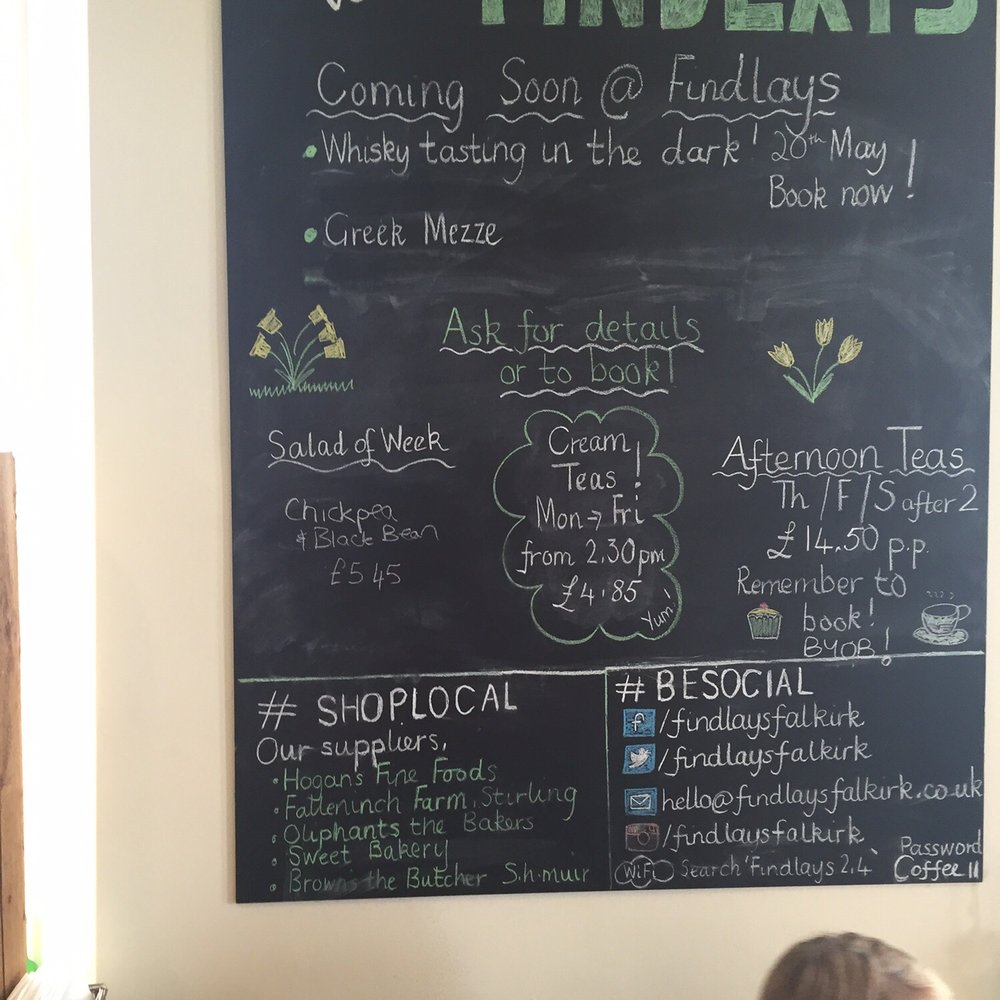 FINDLAYS
Coming Soon @ Findlays
• Whisky tasting in the dark! 20th May
Book now!
• Greek Mezze
Ask for details
or to book!
Salad of Week
Chickpea
& Black Bean
£5 45
Cream
Teas!
Mon → Fri
from 2.30pm
£4.85
Yum!
Afternoon Teas
Th/F/S after 2
£14.50 p.p.
Remember to
book!
BYOB!
# SHOPLOCAL
Our suppliers,
• Hogans Fine Foods
Farm, Stirling
• Oliphants the Bakers
• Sweet Bakery
• Browns the Butcher S.h.muir
# BESOCIAL
f /findlaysfalkirk
/findlaysfalkirk
hello@findlaysfalkirk.co.uk
/findlaysfalkirk
WiFi Search 'Findlays 2.4
Password
Coffee 11